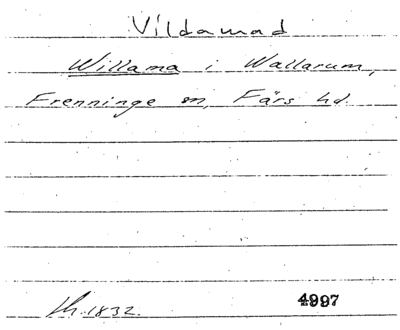 Vildamad
Willama i Wallarum,
Frenninge sn, Färs hd.
th. 1832.
4997